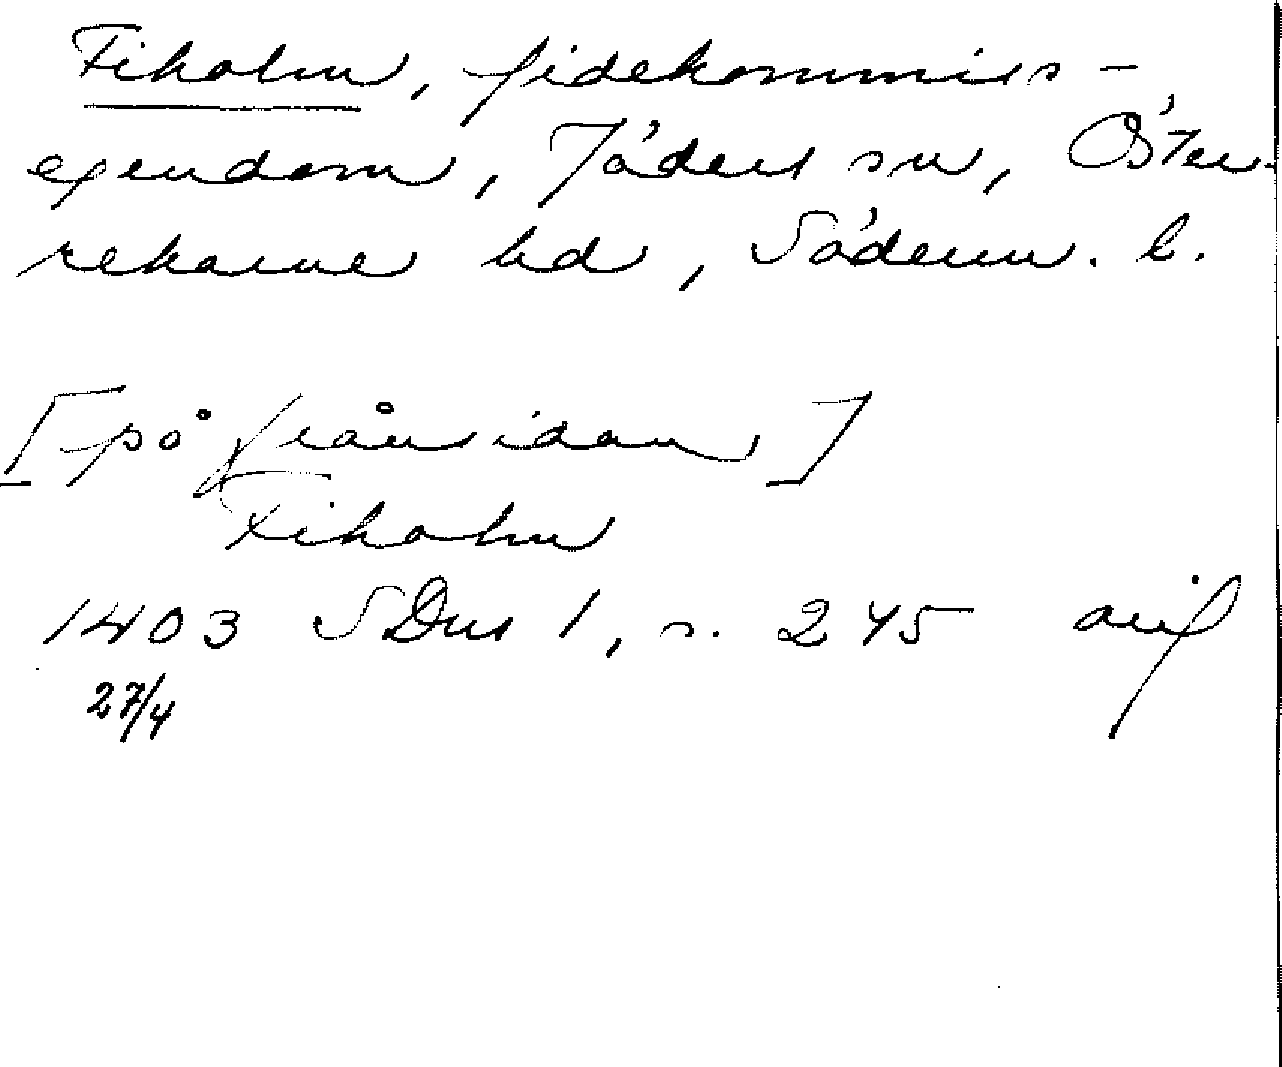 Fiholm, fidekommiss-
egendom, Jäders sn, Öster-
rekarne hd, Söderm. l.
[på frånsidan]
Fiholm
1403 SDns 1, s. 245 orig
27/4